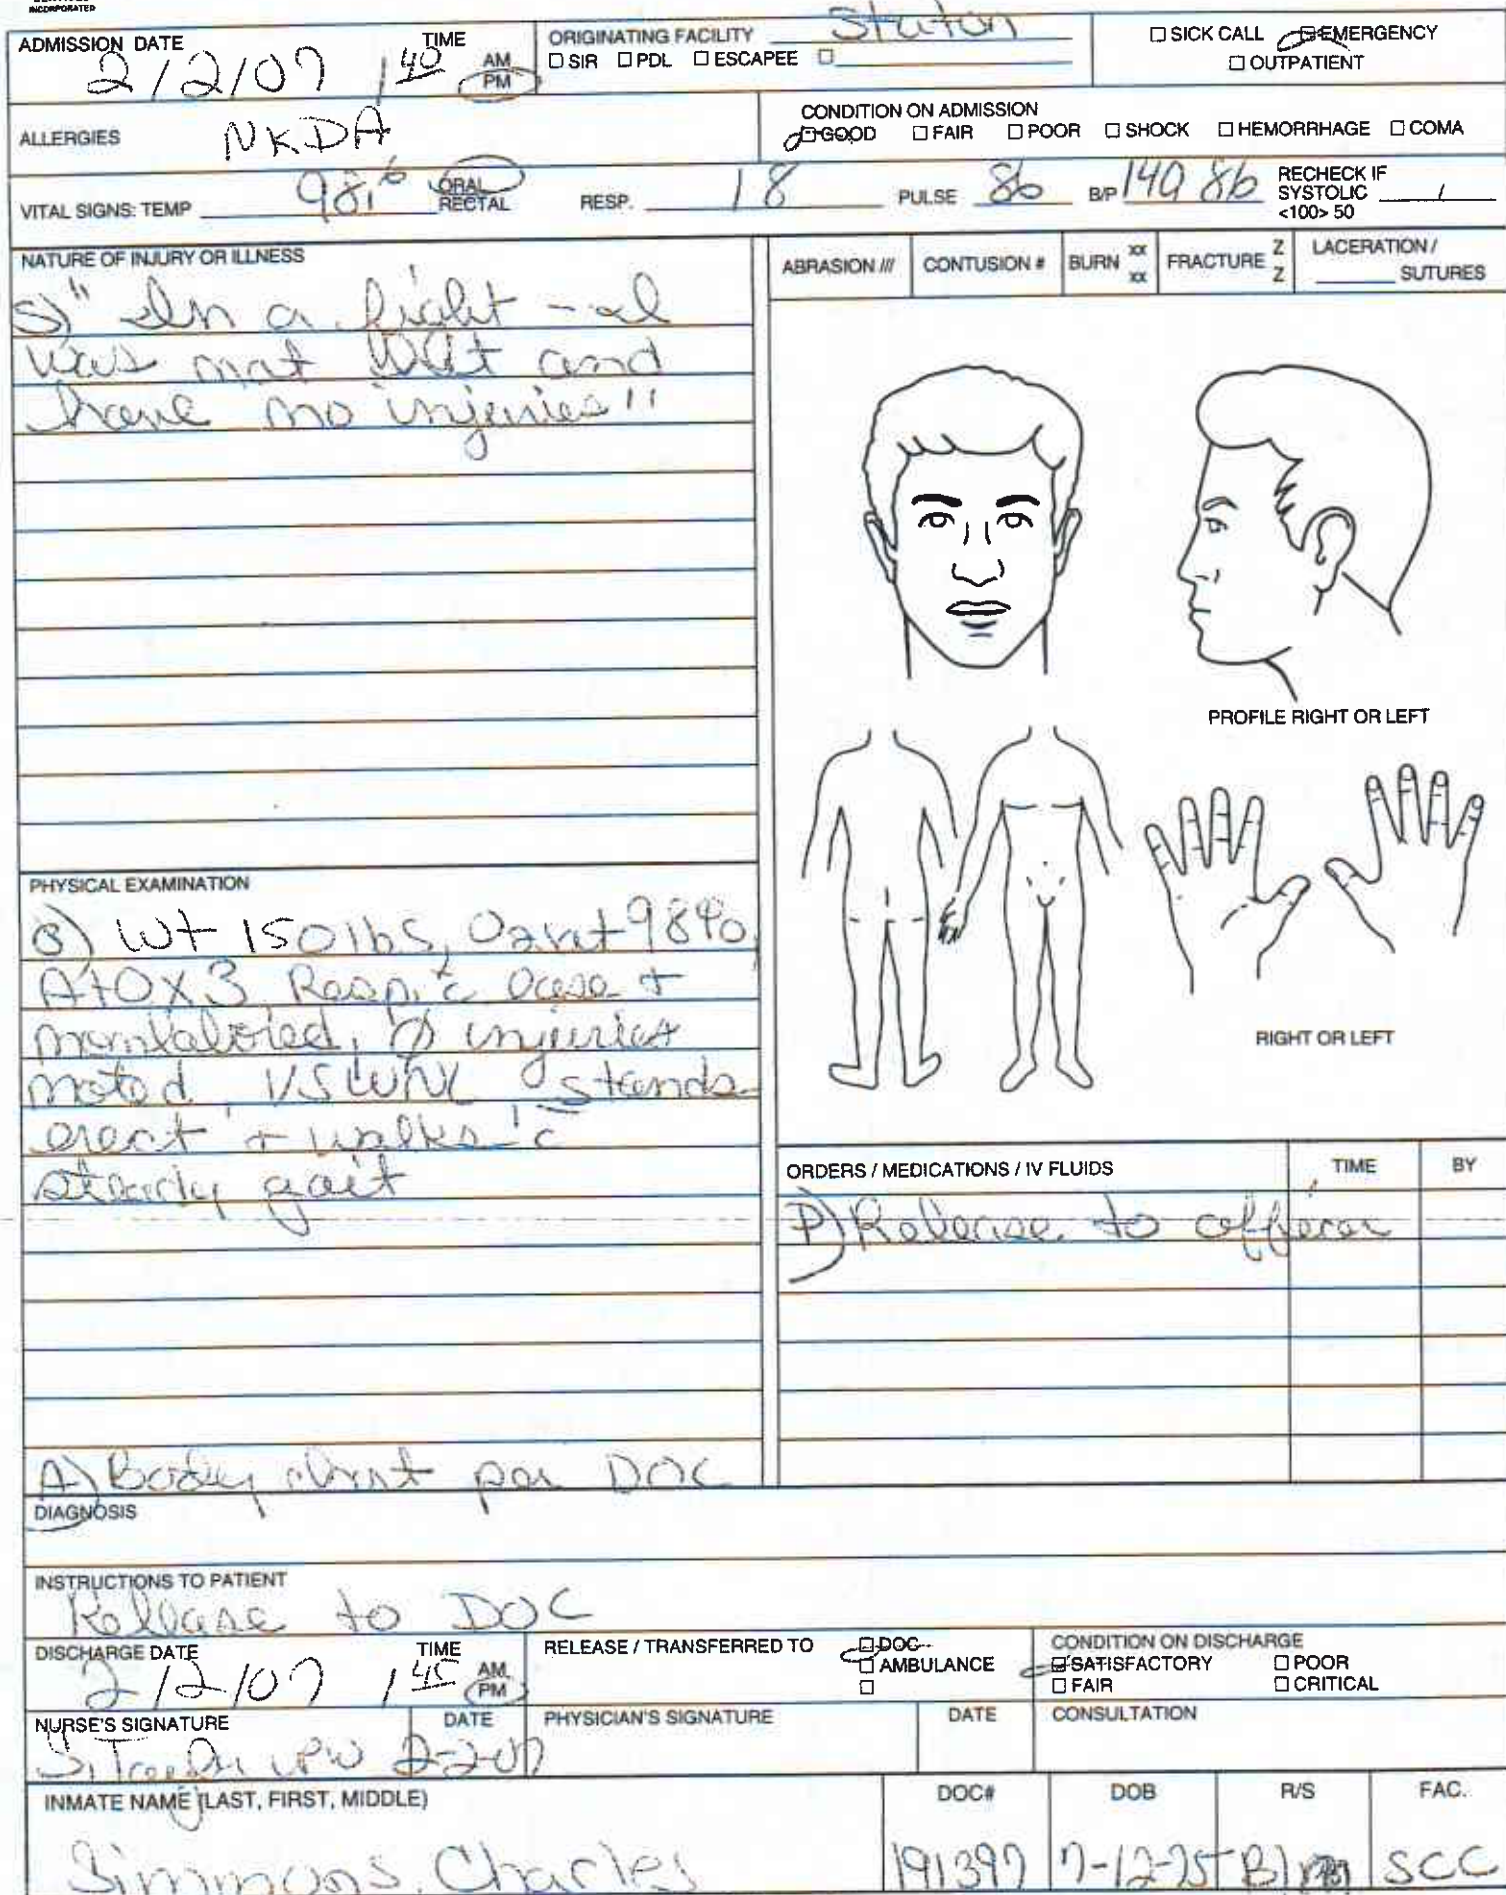 INCORPORATED
ADMISSION DATE 2/2/07 TIME 1 40 AM PM
ORIGINATING FACILITY Staton
□ SIR □ PDL □ ESCAPEE □
□ SICK CALL □ EMERGENCY
□ OUTPATIENT
ALLERGIES NKDA
CONDITION ON ADMISSION
□ GOOD □ FAIR □ POOR □ SHOCK □ HEMORRHAGE □ COMA
VITAL SIGNS: TEMP 98.6 ORAL RECTAL RESP. 18 PULSE 86 B/P 140 86 RECHECK IF SYSTOLIC / <100> 50
NATURE OF INJURY OR ILLNESS
S) " In a fight - I
was not and
have no injuries"
ABRASION /// CONTUSION # BURN xx xx FRACTURE Z Z LACERATION / SUTURES
PROFILE RIGHT OR LEFT
RIGHT OR LEFT
PHYSICAL EXAMINATION
O) Wt 150 lbs, O2 sat 98%
A+OX3 Resp. c ease +
nonlabored, Ø injuries
noted VS WNL stands
erect + walks c
steady gait
A) Body chart per DOC
ORDERS / MEDICATIONS / IV FLUIDS TIME BY
P) Release to officer
DIAGNOSIS
INSTRUCTIONS TO PATIENT
Release to DOC
DISCHARGE DATE 2/2/07 TIME 1 45 AM PM
RELEASE / TRANSFERRED TO □ DOC
□ AMBULANCE
□
CONDITION ON DISCHARGE
□ SATISFACTORY □ POOR
□ FAIR □ CRITICAL
NURSE'S SIGNATURE DATE
LPN 2-2-07
PHYSICIAN'S SIGNATURE DATE CONSULTATION
INMATE NAME (LAST, FIRST, MIDDLE) DOC# DOB R/S FAC.
Simmons, Charles 191397 7-12-75 B/m SCC